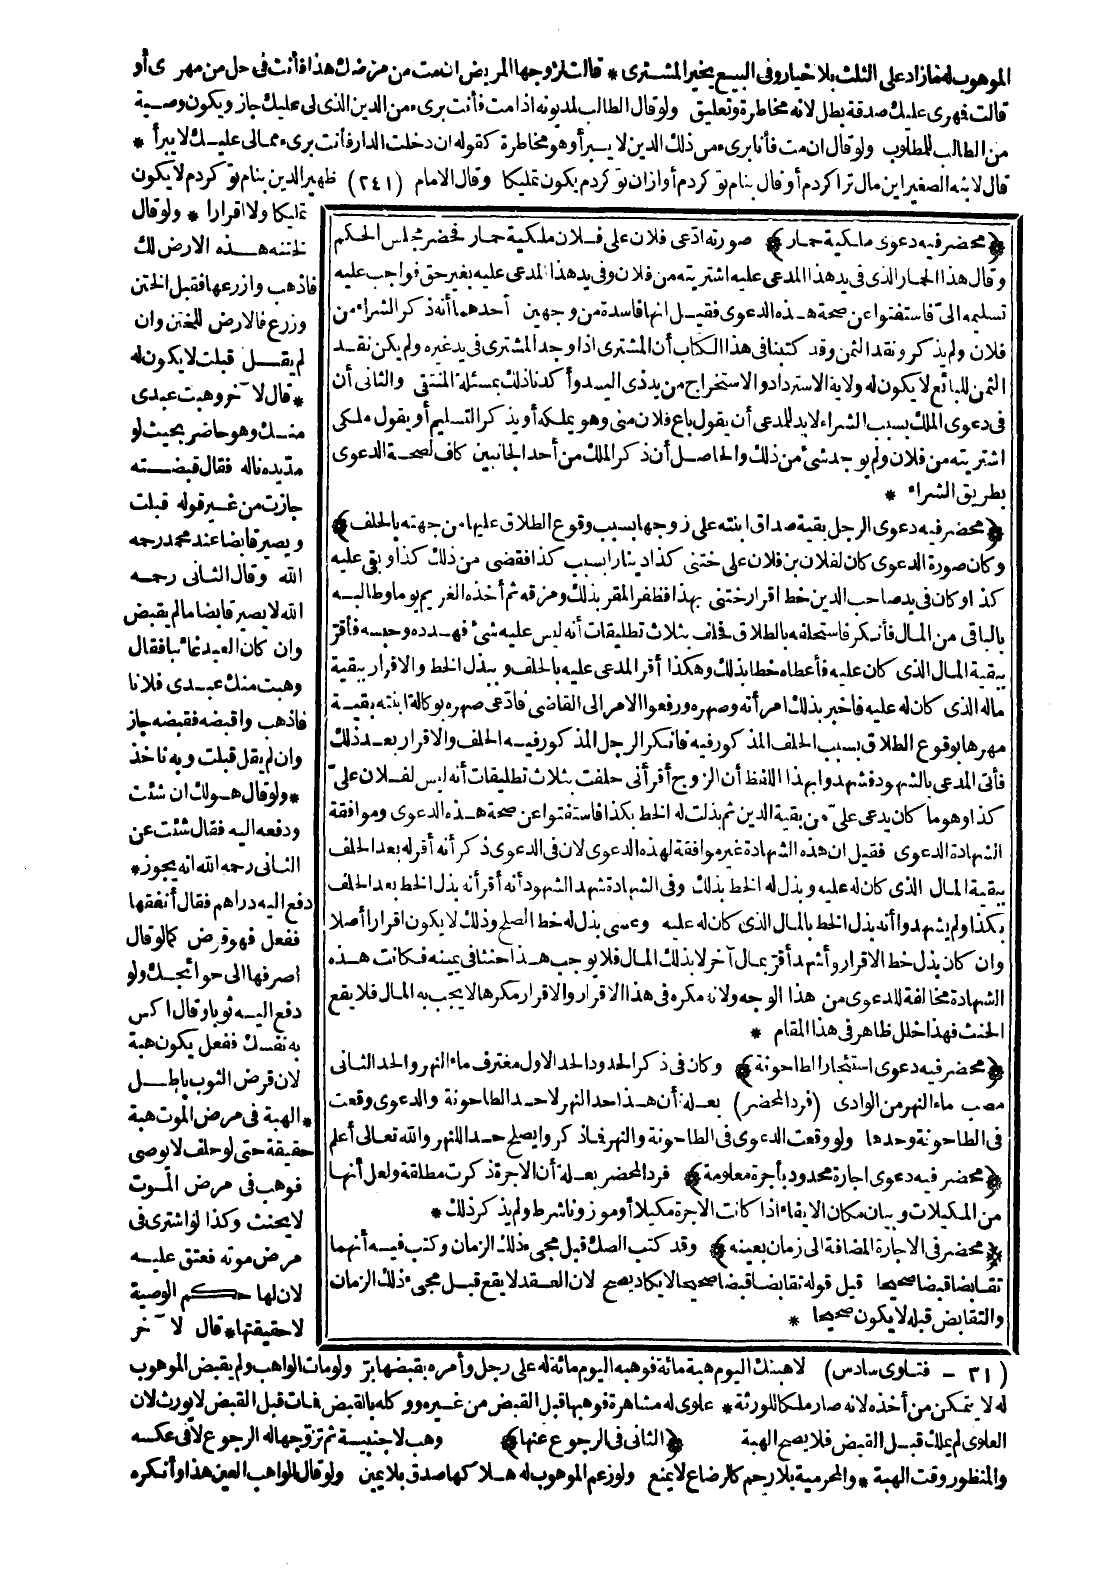 الموهوب له فما زاد على الثلث بلا خيار وفى البيع يخير المشترى * قالت لزوجها المريض ان مت من مرضك هذا فأنت فى حل من مهرى أو
قالت فهرى عليك صدقة بطل لانه مخاطرة وتعليق ولو قال الطالب لمديونه اذا مت فأنت برىء من الدين الذى لى عليك جاز ويكون وصية
من الطالب للمطلوب ولو قال ان مت فأنا برىء من ذلك الدين لا يبرأ وهو مخاطرة كقوله ان دخلت الدار فأنت برىء ممالى عليك لا يبرأ *
قال لابنه الصغير اين مال ترا كردم أو قال بنام تو كردم أو ازان تو كردم يكون تمليكا وقال الامام (٢٤١) ظهير الدين بنام تو كردم لا يكون
تمليكا ولا اقرارا * ولو قال
لختنه هذه الارض لك
فاذهب وازرعها فقبل الختن
وزرع فالارض للختن وان
لم يقل قبلت لا يكون له
* قال لآخر وهبت عبدى
منك وهو حاضر بحيث لو
مد يده ناله فقال قبضته
جازت من غير قوله قبلت
ويصير قابضا عند محمد رحمه
الله وقال الثانى رحمه
الله لا يصير قابضا ما لم يقبض
وان كان العبد غائبا فقال
وهبت منك عبدى فلانا
فاذهب واقبضه فقبضه جاز
وان لم يقل قبلت وبه نأخذ
* ولو قال هو لك ان شئت
ودفعه اليه فقال شئت عن
الثانى رحمه الله انه يجوز *
دفع اليه دراهم فقال أنفقها
ففعل فهو قرض كما لو قال
اصرفها الى حوائجك ولو
دفع اليه ثوبا وقال اكس
به نفسك ففعل يكون هبة
لان قرض الثوب باطل
* الهبة فى مرض الموت هبة
حقيقة حتى لو حلف لا يوصى
فوهب فى مرض الموت
لا يحنث وكذا لو اشترى فى
مرض موته فعتق عليه
لان لها حكم الوصية
لا حقيقتها * قال لآخر
﴿محضر فيه دعوى ملكية حمار﴾ صورته ادعى فلان على فلان ملكية حمار فحضر مجلس الحكم
وقال هذا الحمار الذى فى يد هذا المدعى عليه اشتريته من فلان وفى يد هذا المدعى عليه بغير حق فواجب عليه
تسليمه الىّ فاستفتوا عن صحة هذه الدعوى فقيل انها فاسدة من وجهين أحدهما أنه ذكر الشراء من
فلان ولم يذكر ونقد الثمن وقد كتبنا فى هذا الكتاب أن المشترى اذا وجد المشترى فى يد غيره ولم يكن نقد
الثمن للبائع لا يكون له ولاية الاسترداد والاستخراج من يد ذى اليد وأكدنا ذلك بمسئلة المنتقى والثانى أن
فى دعوى الملك بسبب الشراء لا بد للمدعى أن يقول باع فلان منى وهو يملكه أو يذكر التسليم أو يقول ملكى
اشتريته من فلان ولم يوجد شئ من ذلك والحاصل أن ذكر الملك من أحد الجانبين كاف لصحة الدعوى
بطريق الشراء *
﴿محضر فيه دعوى الرجل بقية صداق ابنته على زوجها بسبب وقوع الطلاق عليها من جهته بالحلف﴾
وكان صورة الدعوى كان لفلان بن فلان على ختنى كذا دينارا بسبب كذا فقضى من ذلك كذا وبقى عليه
كذا وكان فى يد صاحب الدين خط اقرار ختنى بهذا فظفر المقر بذلك ومزقه ثم أخذه الغريم يوما وطالبه
بالباقى من المال فأنكر فاستحلفه بالطلاق فحلف بثلاث تطليقات أنه ليس عليه شئ فهدده وحبسه فأقرّ
ببقية المال الذى كان عليه فأعطاه خطا بذلك وهكذا أقر المدعى عليه بالحلف وببذل الخط والاقرار ببقية
ماله الذى كان له عليه فاخبر بذلك امرأته وصهره ورفعوا الامر الى القاضى فادعى صهره بوكالة ابنته بقية
مهرها بوقوع الطلاق بسبب الحلف المذكور فيه فانكر الرجل المذكور فيه الحلف والاقرار بعد ذلك
فأتى المدعى بالشهود فشهدوا بهذا اللفظ أن الزوج أقر أنى حلفت بثلاث تطليقات أنه ليس لفلان علىّ
كذا وهو ما كان يدعى علىّ من بقية الدين ثم بذلت له الخط بكذا فاستفتوا عن صحة هذه الدعوى وموافقة
الشهادة الدعوى فقيل ان هذه الشهادة غير موافقة لهذه الدعوى لان فى الدعوى ذكر أنه أقر له بعد الحلف
ببقية المال الذى كان له عليه وبذل له الخط بذلك وفى الشهادة شهد الشهود أنه أقر أنه بذل الخط بعد الحلف
بكذا ولم يشهدوا أنه بذل الخط بالمال الذى كان له عليه وعسى بذل له خط الصلح وذلك لا يكون اقرارا أصلا
وان كان بذل خط الاقرار وأشهد أقر بمال آخر لا بذلك المال فلا يوجب هذا حنثا فى يمينه فكانت هذه
الشهادة مخالفة للدعوى من هذا الوجه ولانه مكره فى هذا الاقرار والاقرار مكرها لا يجب به المال فلا يقع
الحنث فهذا خلل ظاهر فى هذا المقام *
﴿محضر فيه دعوى استئجار الطاحونة﴾ وكان فى ذكر الحدود الحد الاول مغترف ماء النهر والحد الثانى
مصب ماء النهر من الوادى (فرد المحضر) بعلة أن هذا حد النهر لا حد الطاحونة والدعوى وقعت
فى الطاحونة وحدها ولو وقعت الدعوى فى الطاحونة والنهر فما ذكروا يصلح حد النهر والله تعالى أعلم
﴿محضر فيه دعوى اجارة محدود بأجرة معلومة﴾ فرد المحضر بعلة أن الاجرة ذكرت مطلقة ولعل أنها
من المكيلات وبيان مكان الايفاء اذا كانت الاجرة مكيلا أو موزونا شرط ولم يذكر ذلك *
﴿محضر فى الاجارة المضافة الى زمان بعينه﴾ وقد كتب الصك قبل مجىء ذلك الزمان وكتب فيه أنهما
تقابضا قبضا صحيحا قيل قوله تقابضا قبضا صحيحا لا يكاد يصح لان العقد لا يقع قبل مجىء ذلك الزمان
والتقابض قبله لا يكون صحيحا *
(٣١ - فتاوى سادس) لاهبنك اليوم هبة مائة فوهبه اليوم مائة له على رجل وأمره بقبضها برّ ولو مات الواهب ولم يقبض الموهوب
له لا يتمكن من أخذه لانه صار ملكا للورثة * علوى له مشاهرة فوهبها قبل القبض من غيره ووكله بالقبض فمات قبل القبض لا يورث لان
العلوى لم يملك قبل القبض فلا يصح الهبة ﴿الثانى فى الرجوع عنها﴾ وهب لاجنبية ثم تزوجها له الرجوع لا فى عكسه
والمنظور وقت الهبة * والمحرمية بلا رحم كالرضاع لا يمنع ولو زعم الموهوب له هلاكها صدق بلا يمين ولو قال الواهب العين هذا وأنكره